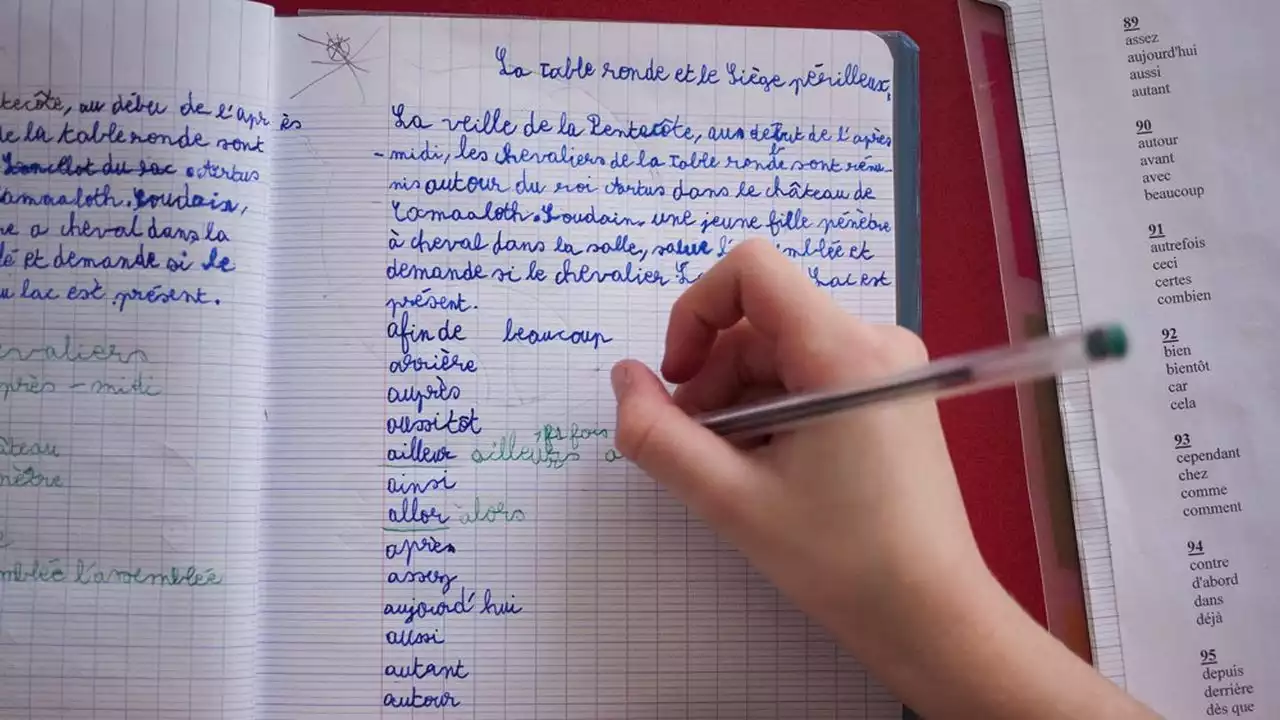 au début de l'après
de la table ronde sont
Artus
Soudain,
a cheval dans la
et demande si le
lac est présent.
après - midi
l'assemblée
La Table ronde et le Siège périlleux,
La veille de la Pentecôte, au début de l'après
-midi, les chevaliers de la Table ronde sont réu-
nis autour du roi Artus dans le château de
Camaaloth. Soudain, une jeune fille pénètre
à cheval dans la salle, salue
et
demande si le chevalier
Lac est
présent.
afin de beaucoup
arrière
auprès
aussitôt
ailleur ailleurs
ainsi
allor alors
après
assez
aujourd'hui
aussi
autant
autour
89
assez
aujourd'hui
aussi
autant
90
autour
avant
avec
beaucoup
91
autrefois
ceci
certes
combien
92
bien
bientôt
car
cela
93
cependant
chez
comme
comment
94
contre
d'abord
dans
déjà
95
depuis
derrière
dès que